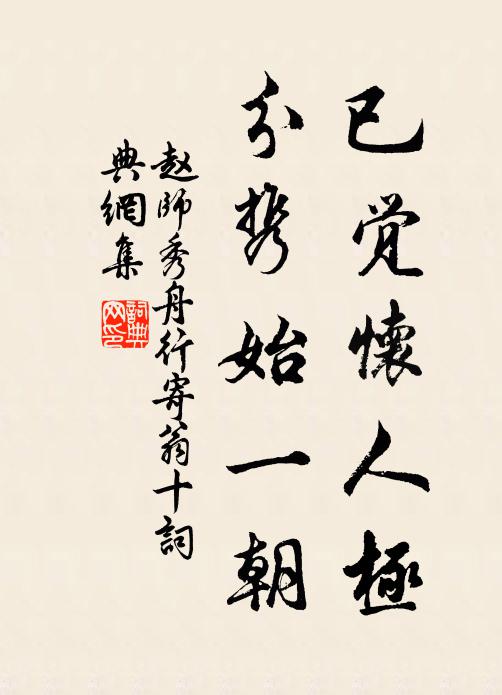 已觉懷人極
分携始一朝
赵師秀舟行寄翁十詞
典網集
詞典
网印